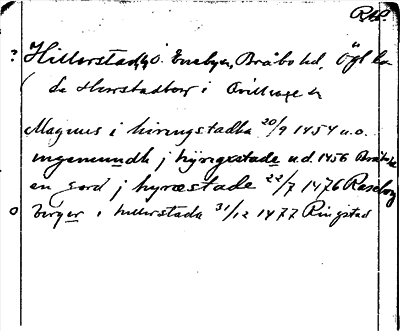 RAP
? Hillerstad, Ö. Eneby, Bråbo hd, Ögl.
( Se Herstadborg i Kvillinge
Magnus i hiringstadha 20/9 1454 u.o.
ingemundh j hyrgestade u.d. 1456 Bråbo
en gord j hyrestade 22/7 1476 Raseborg
o birger i hillerstada 31/12 1477 Ringstad